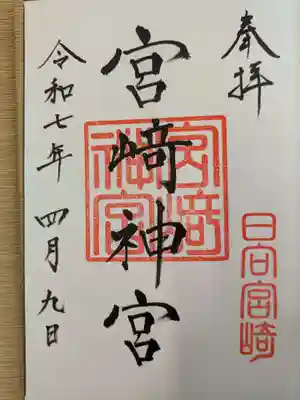 奉拝
日向宮崎
宮﨑神宮
宮﨑神宮
令和七年 四月九日